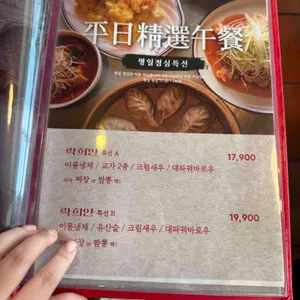 平日精選午餐
평일점심특선
락희안 특선 A
17,900
이품냉채 / 교자 2종 / 크림새우 / 대파꿔바로우
짜장 or 짬뽕 택1
락희안 특선 B
19,900
이품냉채 / 유산슬 / 크림새우 / 대파꿔바로우
짜장 or 짬뽕 택1